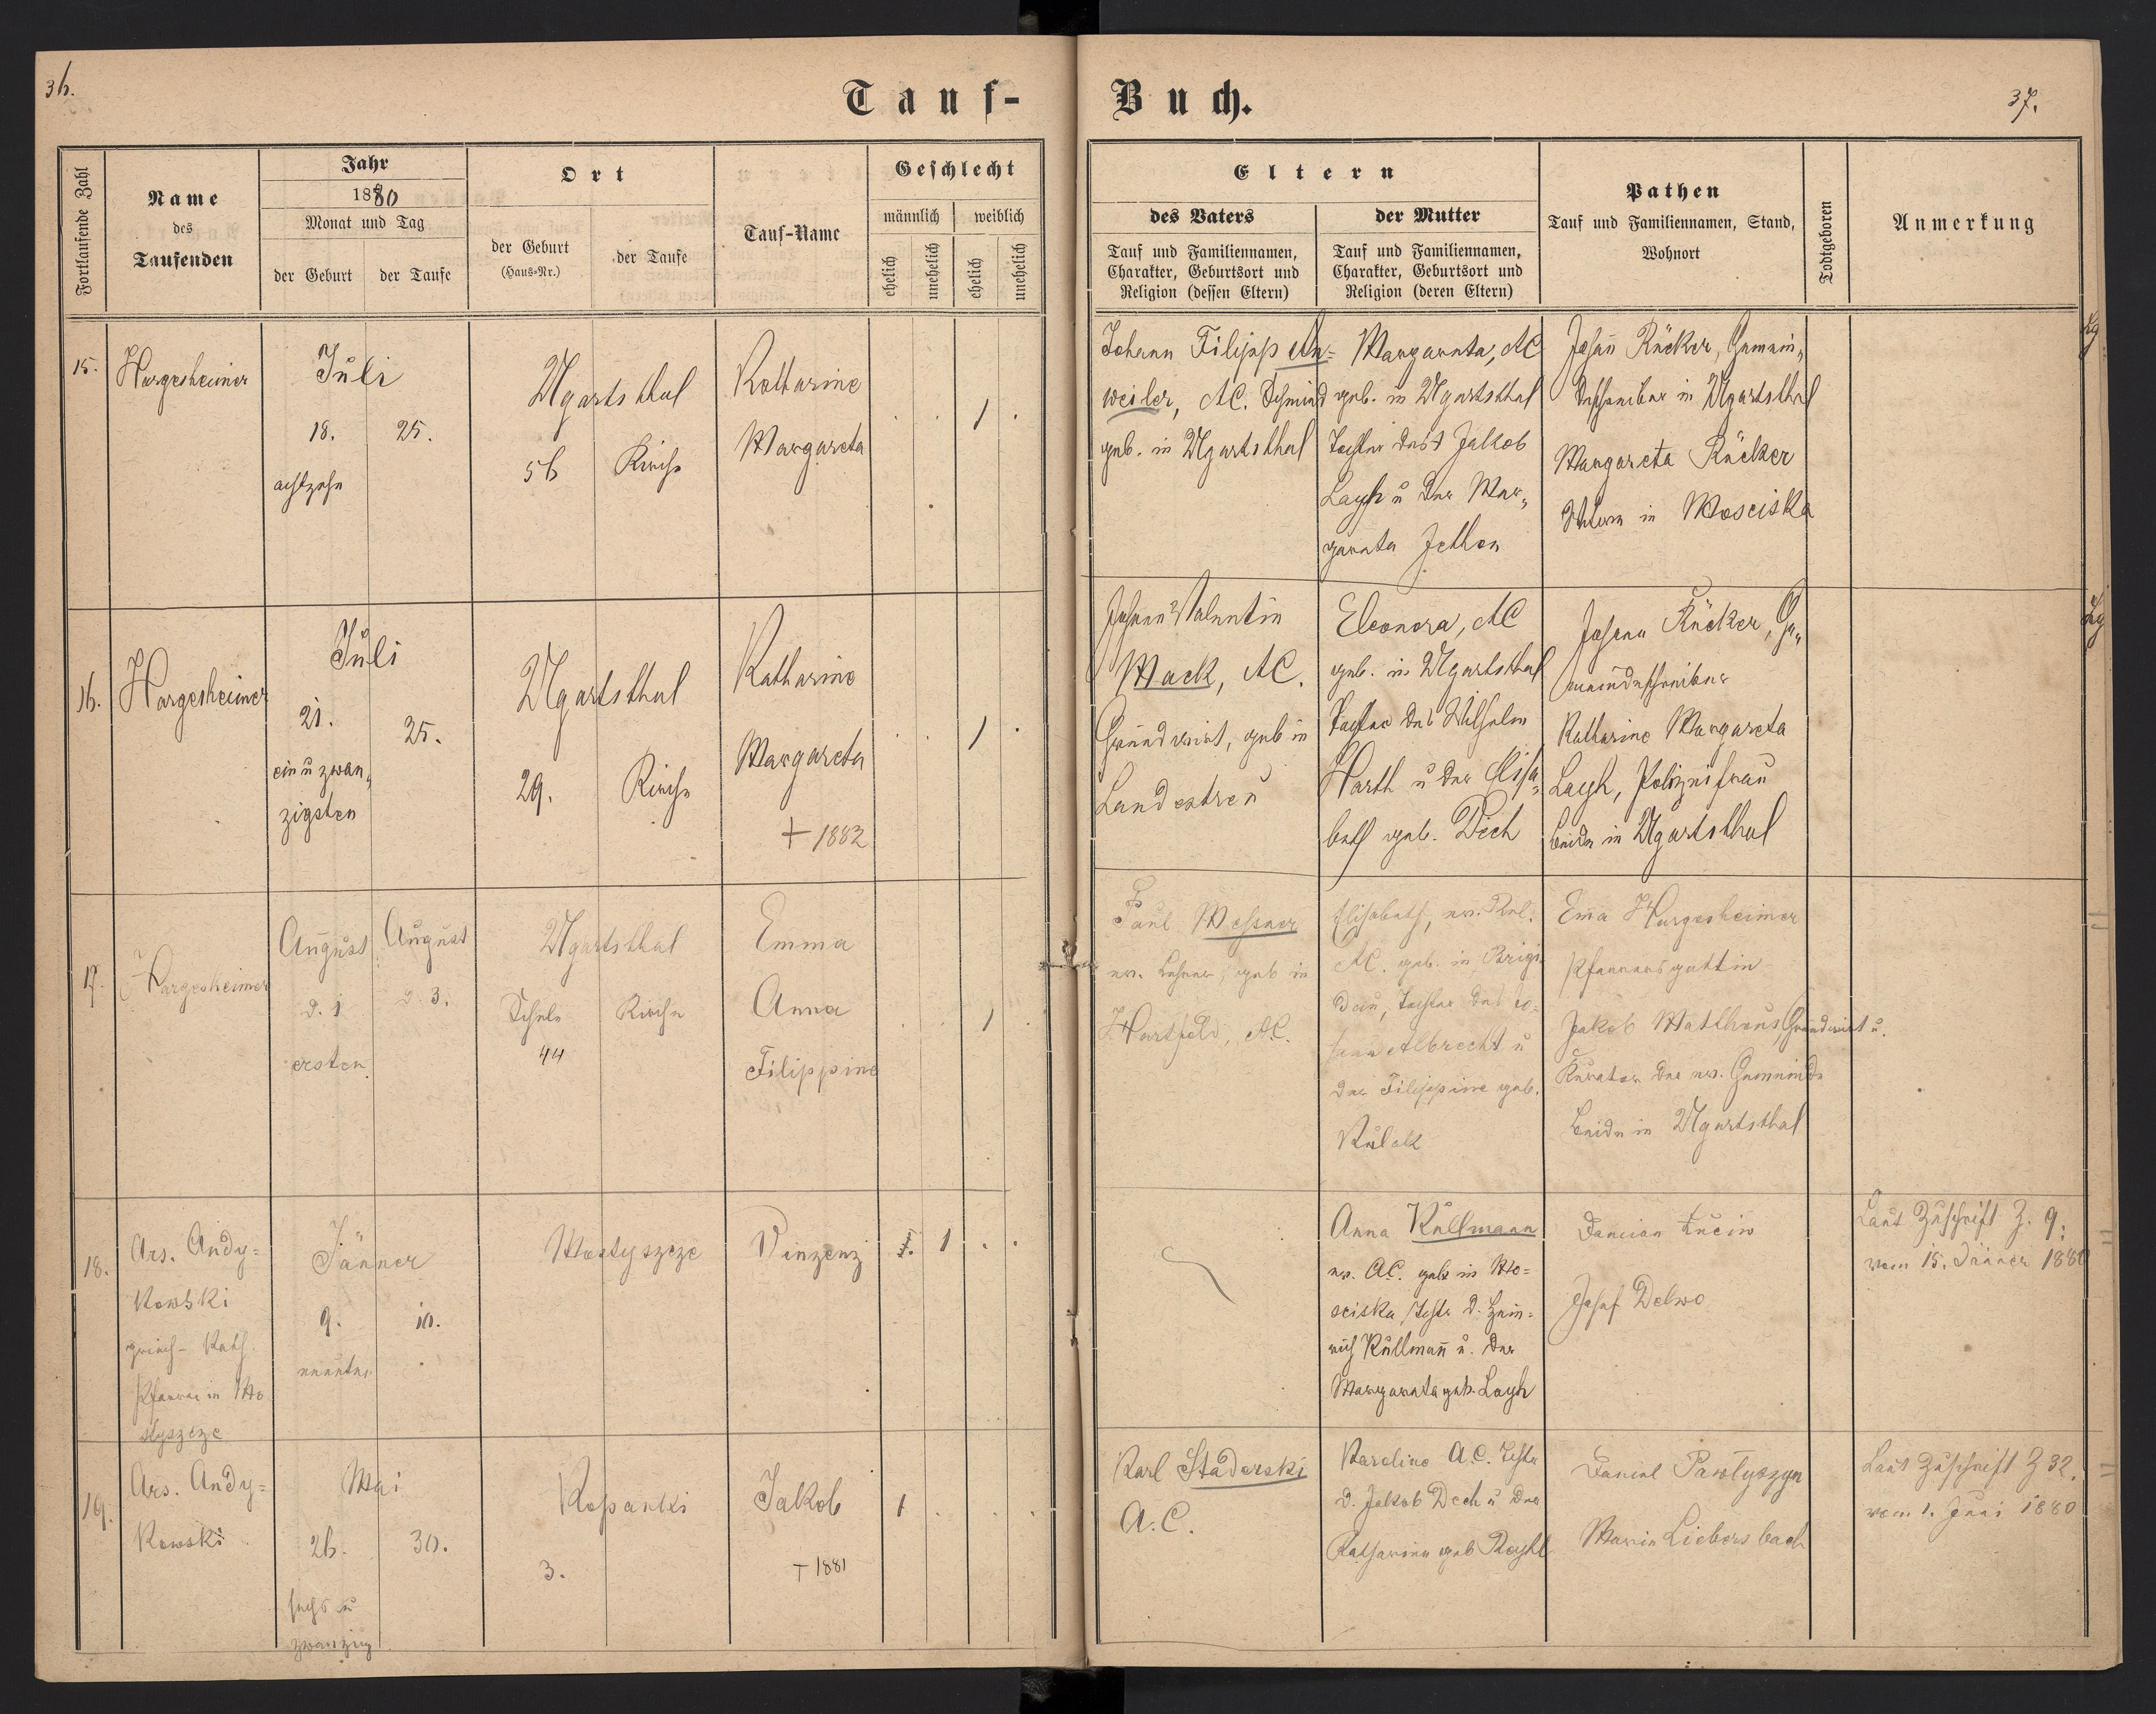 36.
Tauf-
Buch.
37.
Fortlaufende Zahl
Name
des
Taufenden
Jahr
1880
Monat und Tag
der Geburt
der Taufe
Ort
der Geburt
(Haus-Nr.)
der Taufe
Tauf-Name
Geschlecht
männlich
weiblich
ehelich
unehelich
ehelich
unehelich
Eltern
des Vaters
Tauf und Familiennamen,
Charakter, Geburtsort und
Religion (dessen Eltern)
der Mutter
Tauf und Familiennamen,
Charakter, Geburtsort und
Religion (deren Eltern)
Pathen
Tauf und Familiennamen, Stand,
Wohnort
Todtgeboren
Anmerkung
15.
Hargesheimer
Juli
18.
25.
achtzehn
Ugartsthal
56
Kirche
Katharine
Margareta
1
Johann Filipp An=
weiler, AC. Schmied
geb. in Ugartsthal
Margareta, AC
geb. in Ugartsthal
Tochter des Jakob
Layh u der Mar„
gareta Jethon
Johann Rücker, Gemein„
deschreiber in Ugartsthal
Margareta Rücker
in Mosciska
16.
Hargesheimer
Juli
21.
25.
ein u zwan„
zigsten
Ugartsthal
29.
Kirche
Katharine
Margareta
+ 1882
1
Johann Valentin
Mack, AC.
Grundwirt, geb in
Landestreu
Eleonora, AC
geb. in Ugartsthal
Tochter des Wilhelm
Harth u der Elisa„
beth geb. Dech
Johann Rücker, Ge„
meindeschreiber
Katharine Margareta
Layh, Polizeifrau
beide in Ugartsthal
17.
Hargesheimer
August
d. 1
ersten
August
d. 3.
Ugartsthal
Schule
44
Kirche
Emma
Anna
Filippine
1
Paul Messner
ev. Lehrer, geb in
Hartfeld, AC.
Elisabeth, ev. Rel.
AC. geb. in Brigi
dau, Tochter des Jo=
hann Albrecht u
der Filippine geb.
Kulick
Emma Hargesheimer
Pfarrersgattin
Jakob Mattheus, Grundwirt u.
Kurator der ev. Gemeinde
beide in Ugartsthal
18.
Ars. Andy=
kowski
griech- kath.
Pfarrer in Mo
styszcze
Jänner
9.
10.
neunte
Mostyszcze
Vinzenz
1
Anna Kullmann
ev. AC. geb in Mo=
sciska, Tocht. d. Hein=
rich Kullmann u. der
Margareta geb. Layh
Damian Łuciw
Josef Delwo
Laut Zuschrift Z. 9:
vom 15. Jänner 1880
19.
Ars. Andy=
kowski
Mai
26.
30.
sechs u
zwanzig
Kopanki
3.
Jakob
+ 1881
1
Karl Staderski
A.C.
Karoline A.C. Tocht
d. Jakob Dech u der
Katharina geb
Daniel Pawłyszyn
Maria Liebersbach
Laut Zuschrift Z 32.
vom 1. Juni 1880